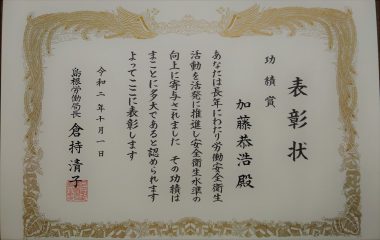 表彰状
功績賞
加藤恭浩 殿
あなたは長年にわたり労働安全衛生
活動を活発に推進し安全衛生水準の
向上に寄与されました その功績は
まことに多大であると認められます
よってここに表彰します
令和二年十月一日
島根労働局長 倉持清子